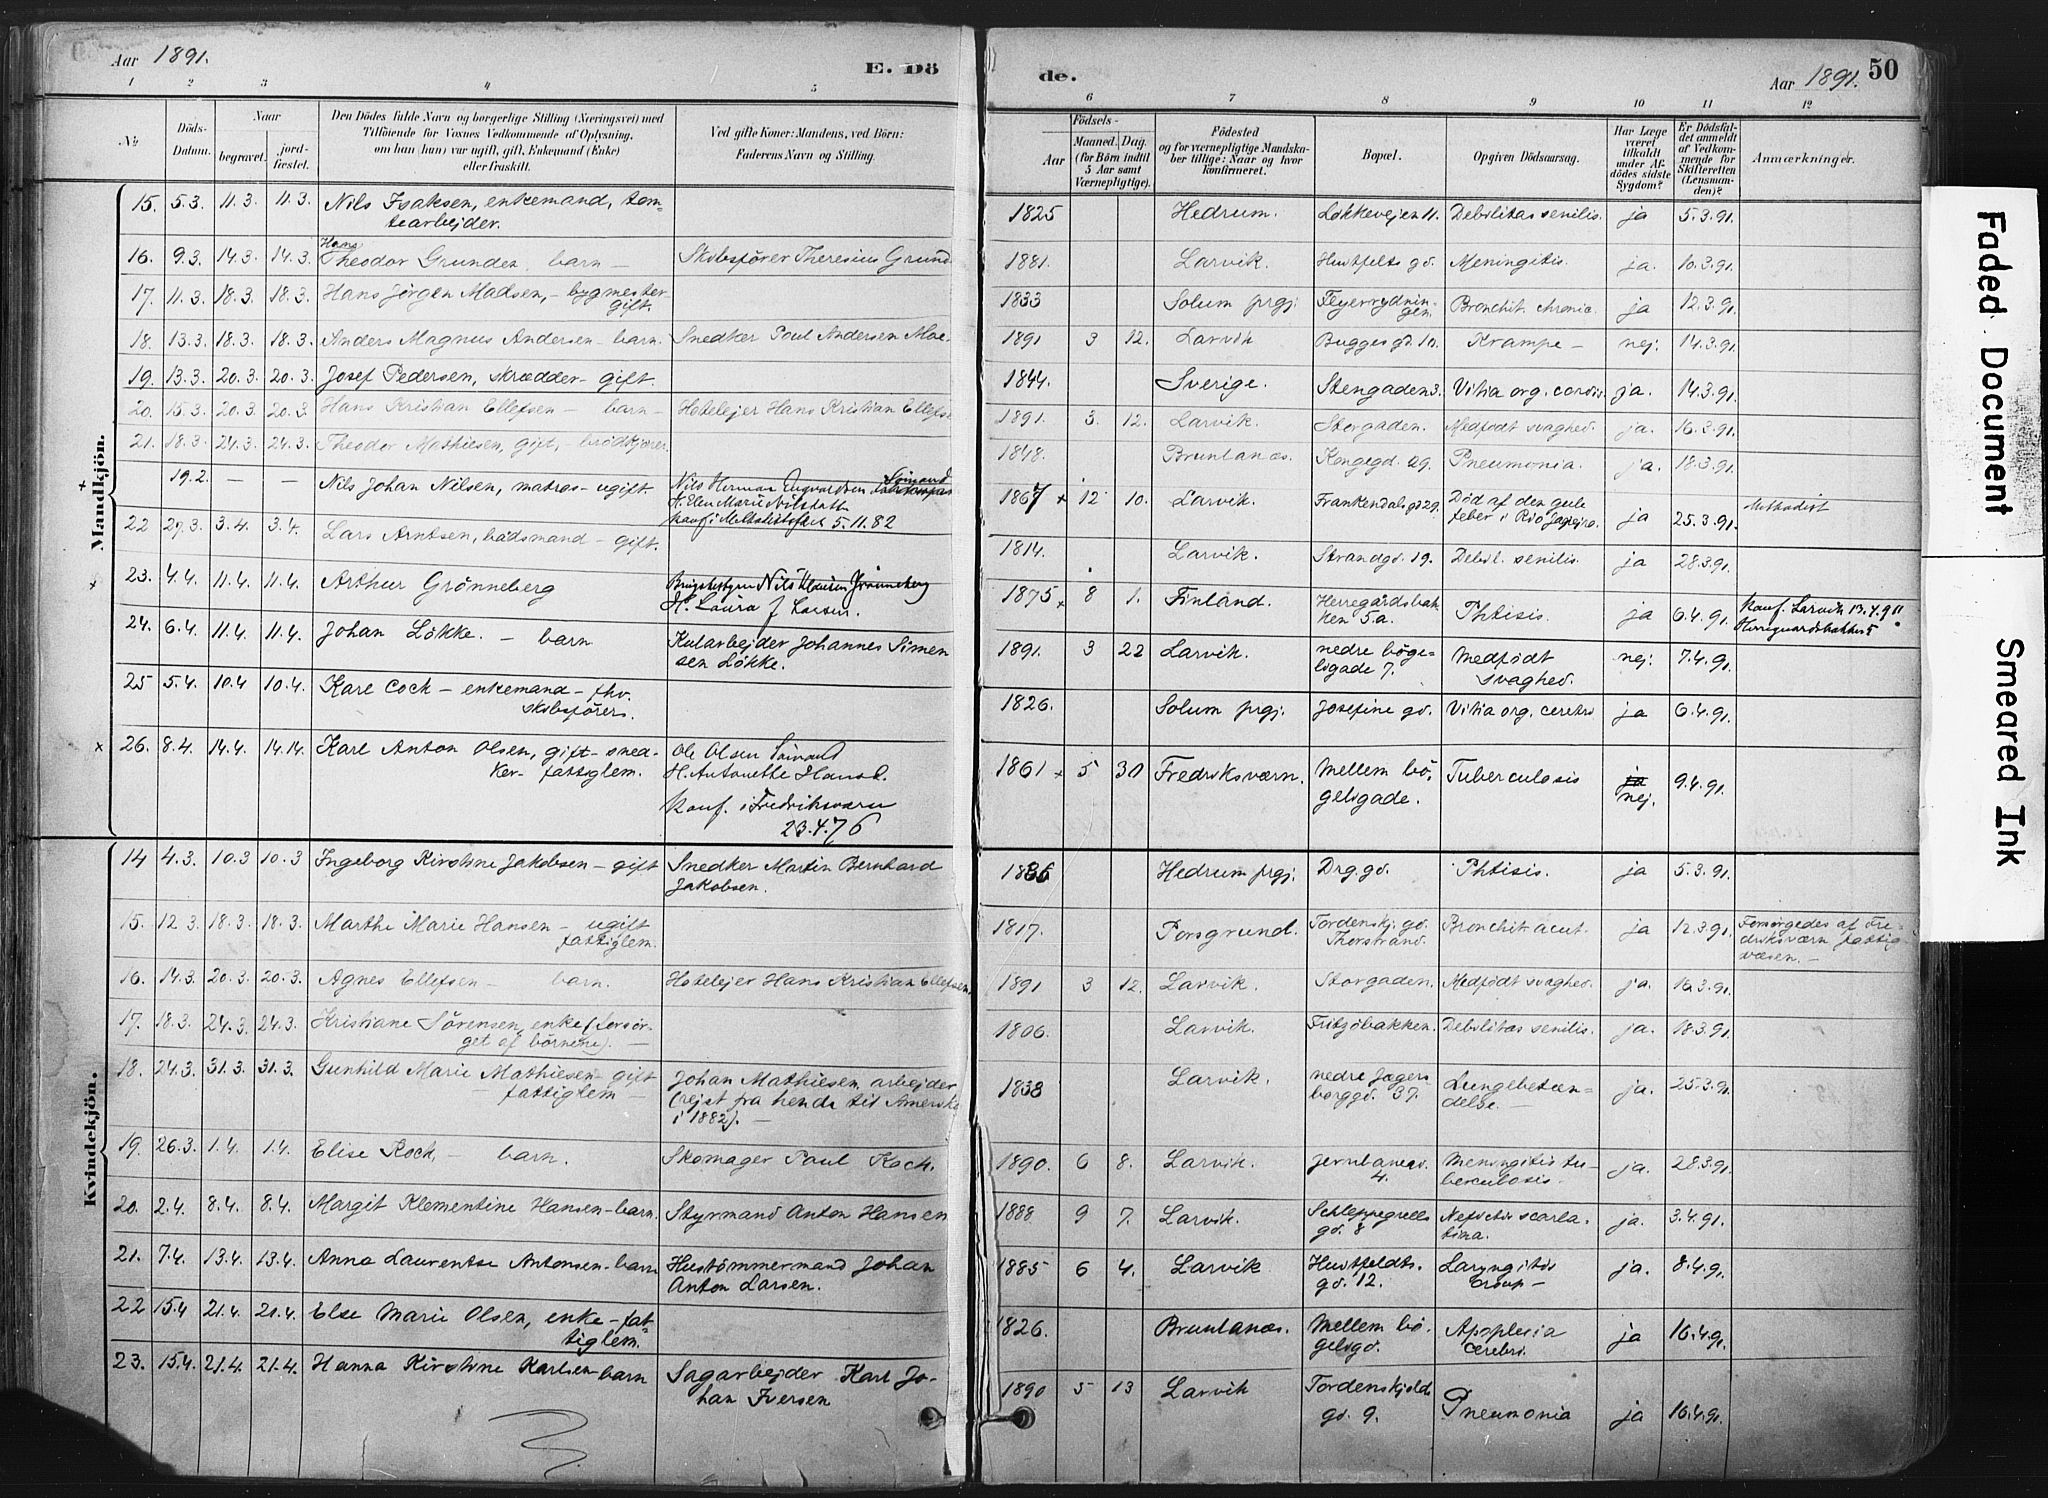 Aar 1891.
E. Dö
de.
Aar 1891.
50
1 2 3 4 5
6 7 8 9 10 11 12
No
Döds-Datum.
Naar
begravet.
jord-fæstet.
Den Dödes fulde Navn og borgerlige Stilling (Næringsvei) med
Tilföiende for Voxnes Vedkommende af Oplysning,
om han (hun) var ugift, gift, Enkemand (Enke)
eller fraskilt.
Ved gifte Koner: Mandens, ved Börn:
Faderens Navn og Stilling.
Födsels-
Aar
Maaned. Dag.
(for Börn indtil
5 Aar samt
Værnepligtige).
Födested
og for værnepligtige Mandska-
ber tillige: Naar og hvor
konfirmeret.
Bopæl.
Opgiven Dödsaarsag.
Har Læge
været
tilkaldt
under Af-
dödes sidste
Sygdom?
Er Dödsfal-
det anmeldt
af Vedkom-
mende for
Skifteretten
(Lensman-
den)?
Anmærkninger.
Mandkjön.
15. 5.3. 11.3. 11.3. Nils Isaksen, enkemand, tom-
tearbejder.
1825 Hedrum. Løkkevejen 11. Debilitas senilis. ja 5.3.91.
16. 9.3. 14.3. 14.3. Hans
Theodor Grunden barn — Skibsfører Theresius Grund
1881. Larvik. Huitfelts gd. Meningitis. ja. 10.3.91.
17. 11.3. 18.3. 18.3. Hans Jörgen Madsen, - bygmester-
gift.
1833 Solum prgj. Fejerrydnin-
gen. Bronchit. chronic. ja 12.3.91.
18. 13.3. 18.3. 18.3. Anders Magnus Andersen - barn. Snedker Poul Andersen Moe.
1891 3 12. Larvik Bugges gd. 10. Krampe — nej. 14.3.91.
19. 13.3. 20.3. 20.3. Josef Pedersen, skrædder - gift.
1844. Sverige. Stengaden 3. Vitia org. cordis ja. 14.3.91.
20. 15.3. 20.3. 20.3. Hans Kristian Ellefsen — barn — Hotelejer Hans Kristian Ellefs
1891. 3. 12. Larvik. Storgaden. Medfødt svaghed. ja. 16.3.91.
21. 18.3. 24.3. 24.3. Theodor Mathiesen, gift, - brödkjører.
1848. Brunlanæs. Kongegd. 29. Pneumonia. ja. 18.3.91.
+ 19.2. — — Nils Johan Nilsen, matros - ugift. Nils Herman Sømand
H. Elen Marie
konf i 5.11.82
1867 x 12 10. Larvik. Frankendalsgd 29. Död af den gule
feber i Rio Janejro. ja 25.3.91. Methodist
22 27.3. 3.4. 3.4. Lars Arntsen, bådsmand - gift.
1814. Larvik. Strandgd. 19. Debil. senilis. ja 28.3.91.
x 23. 4.4. 11.4. 11.4. Arthur Grönneberg Brugsbestyrer Nils Klausen Grönneberg
H. Laura f Larsen.
1875 x 8 1. Finland. Herregårdsbak-
ken 5a. Phtisis. ja 6.4.91. Konf. Larvik 13.4.90
Herregaardsbakken 5
24. 6.4. 11.4. 11.4. Johan Lökke. — barn Kularbejder Johannes Simen
sen Løkke.
1891. 3 22 Larvik. nedre bøge-
ligade 7. Medfödt
svaghed. nej. 7.4.91.
25 5.4. 10.4 10.4. Kare Cock — enkemand - fhv.
skibsfører.
1826. Solum prgj. Josefine gd. Vitia org. cerebri ja 6.4.91.
x 26. 8.4. 14.4. 14.14. Karl Anton Olsen, gift - sned-
ker - fattiglem. Ole Olsen Sømand
H. Antonette Hansd.
Konf. i Fredriksværn
23.4.76
1861 x 5 30 Fredriksværn. Mellem bö-
geligade. Tuberculosis ja
nej. 9.4.91.
Kvindekjön.
14 4.3. 10.3 10.3 Ingeborg Kirstine Jakobsen - gift Snedker Martin Bernhard
Jakobsen.
1886 Hedrum prgj. Drg.gd. Phtisis. ja 5.3.91.
15. 12.3 18.3. 18.3. Marthe Marie Hansen - ugift
fattiglem.
1817. Porsgrund. Tordenskj. gd.
Thorstrand. Bronchit acut. ja 12.3.91. Forsørgedes af Fre-
driksværn fattig-
væsen. —
16. 14.3. 20.3. 20.3. Agnes Ellefsen — barn. Hotelejer Hans Kristian Ellefsen.
1891 3 12. Larvik. Storgaden. Medfødt svaghed. ja. 16.3.91.
17. 18.3. 24.3. 24.3. Kristiane Sörensen, enke (forsör-
get af børnene). —
1806. Larvik. Fritzöbakken. Debilitas senilis. ja. 18.3.91.
18. 24.3. 31.3. 31.3. Gunhild Marie Mathiesen - gift
- fattiglem — Johan Mathiesen, arbejder
(rejst fra hende til Amerika
i 1882). —
1838 Larvik. nedre Jegers
borggd. 37. Lungebetæn-
delse. — ja. 25.3.91.
19. 26.3. 1.4. 1.4. Elise Koch, — barn. Skomager Paul Koch.
1890. 6 8. Larvik. Jernbanegd.
4. Meningitis tu-
berculosis. ja. 28.3.91.
20. 2.4. 8.4. 8.4. Margit Klementine Hansen - barn. Styrmand Anton Hansen
1888 9 7. Larvik. Schleppegrells
gd. 8 Nefritis scarla-
tina. ja. 3.4.91.
21. 7.4. 13.4. 13.4. Anna Laurentse Antonsen - barn Hustömmermand Johan
Anton Larsen.
1885 6 4. Larvik Huitfeldts.
gd. 12. Laryngitis
croup — ja. 8.4.91.
22 15.4 21.4. 21.4. Else Marie Olsen, enke - fat-
tiglem.
1826. Brunlanæs. Mellem bö-
geligd. Apoplexia
cerebri. ja 16.4.91.
23. 15.4. 21.4. 21.4. Hanna Kirstine Karlsen - barn Sagarbejder Karl Jo-
han Iversen
1890 5 13 Larvik Tordenskjold
gd. 9. Pneumonia ja 16.4.91.
Faded Document
Smeared Ink